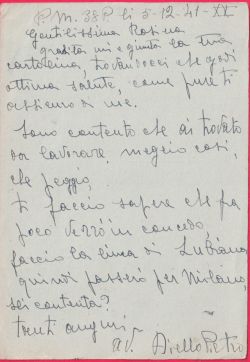 P.M. 38P. li 5-12-41-XX
Gentilissima Rosina
gradita mi è giunta la tua
cartolina, trovandoci che godi
ottima salute, come pure ti
assicuro di me.
Sono contento che ai trovato
da lavorare, meglio così,
che peggio,
ti faccio sapere che fra
poco verrò in congedo,
faccio la linea di Lubiana
quindi passerò per Milano,
sei contenta?
tanti auguri
Aiello Pietro